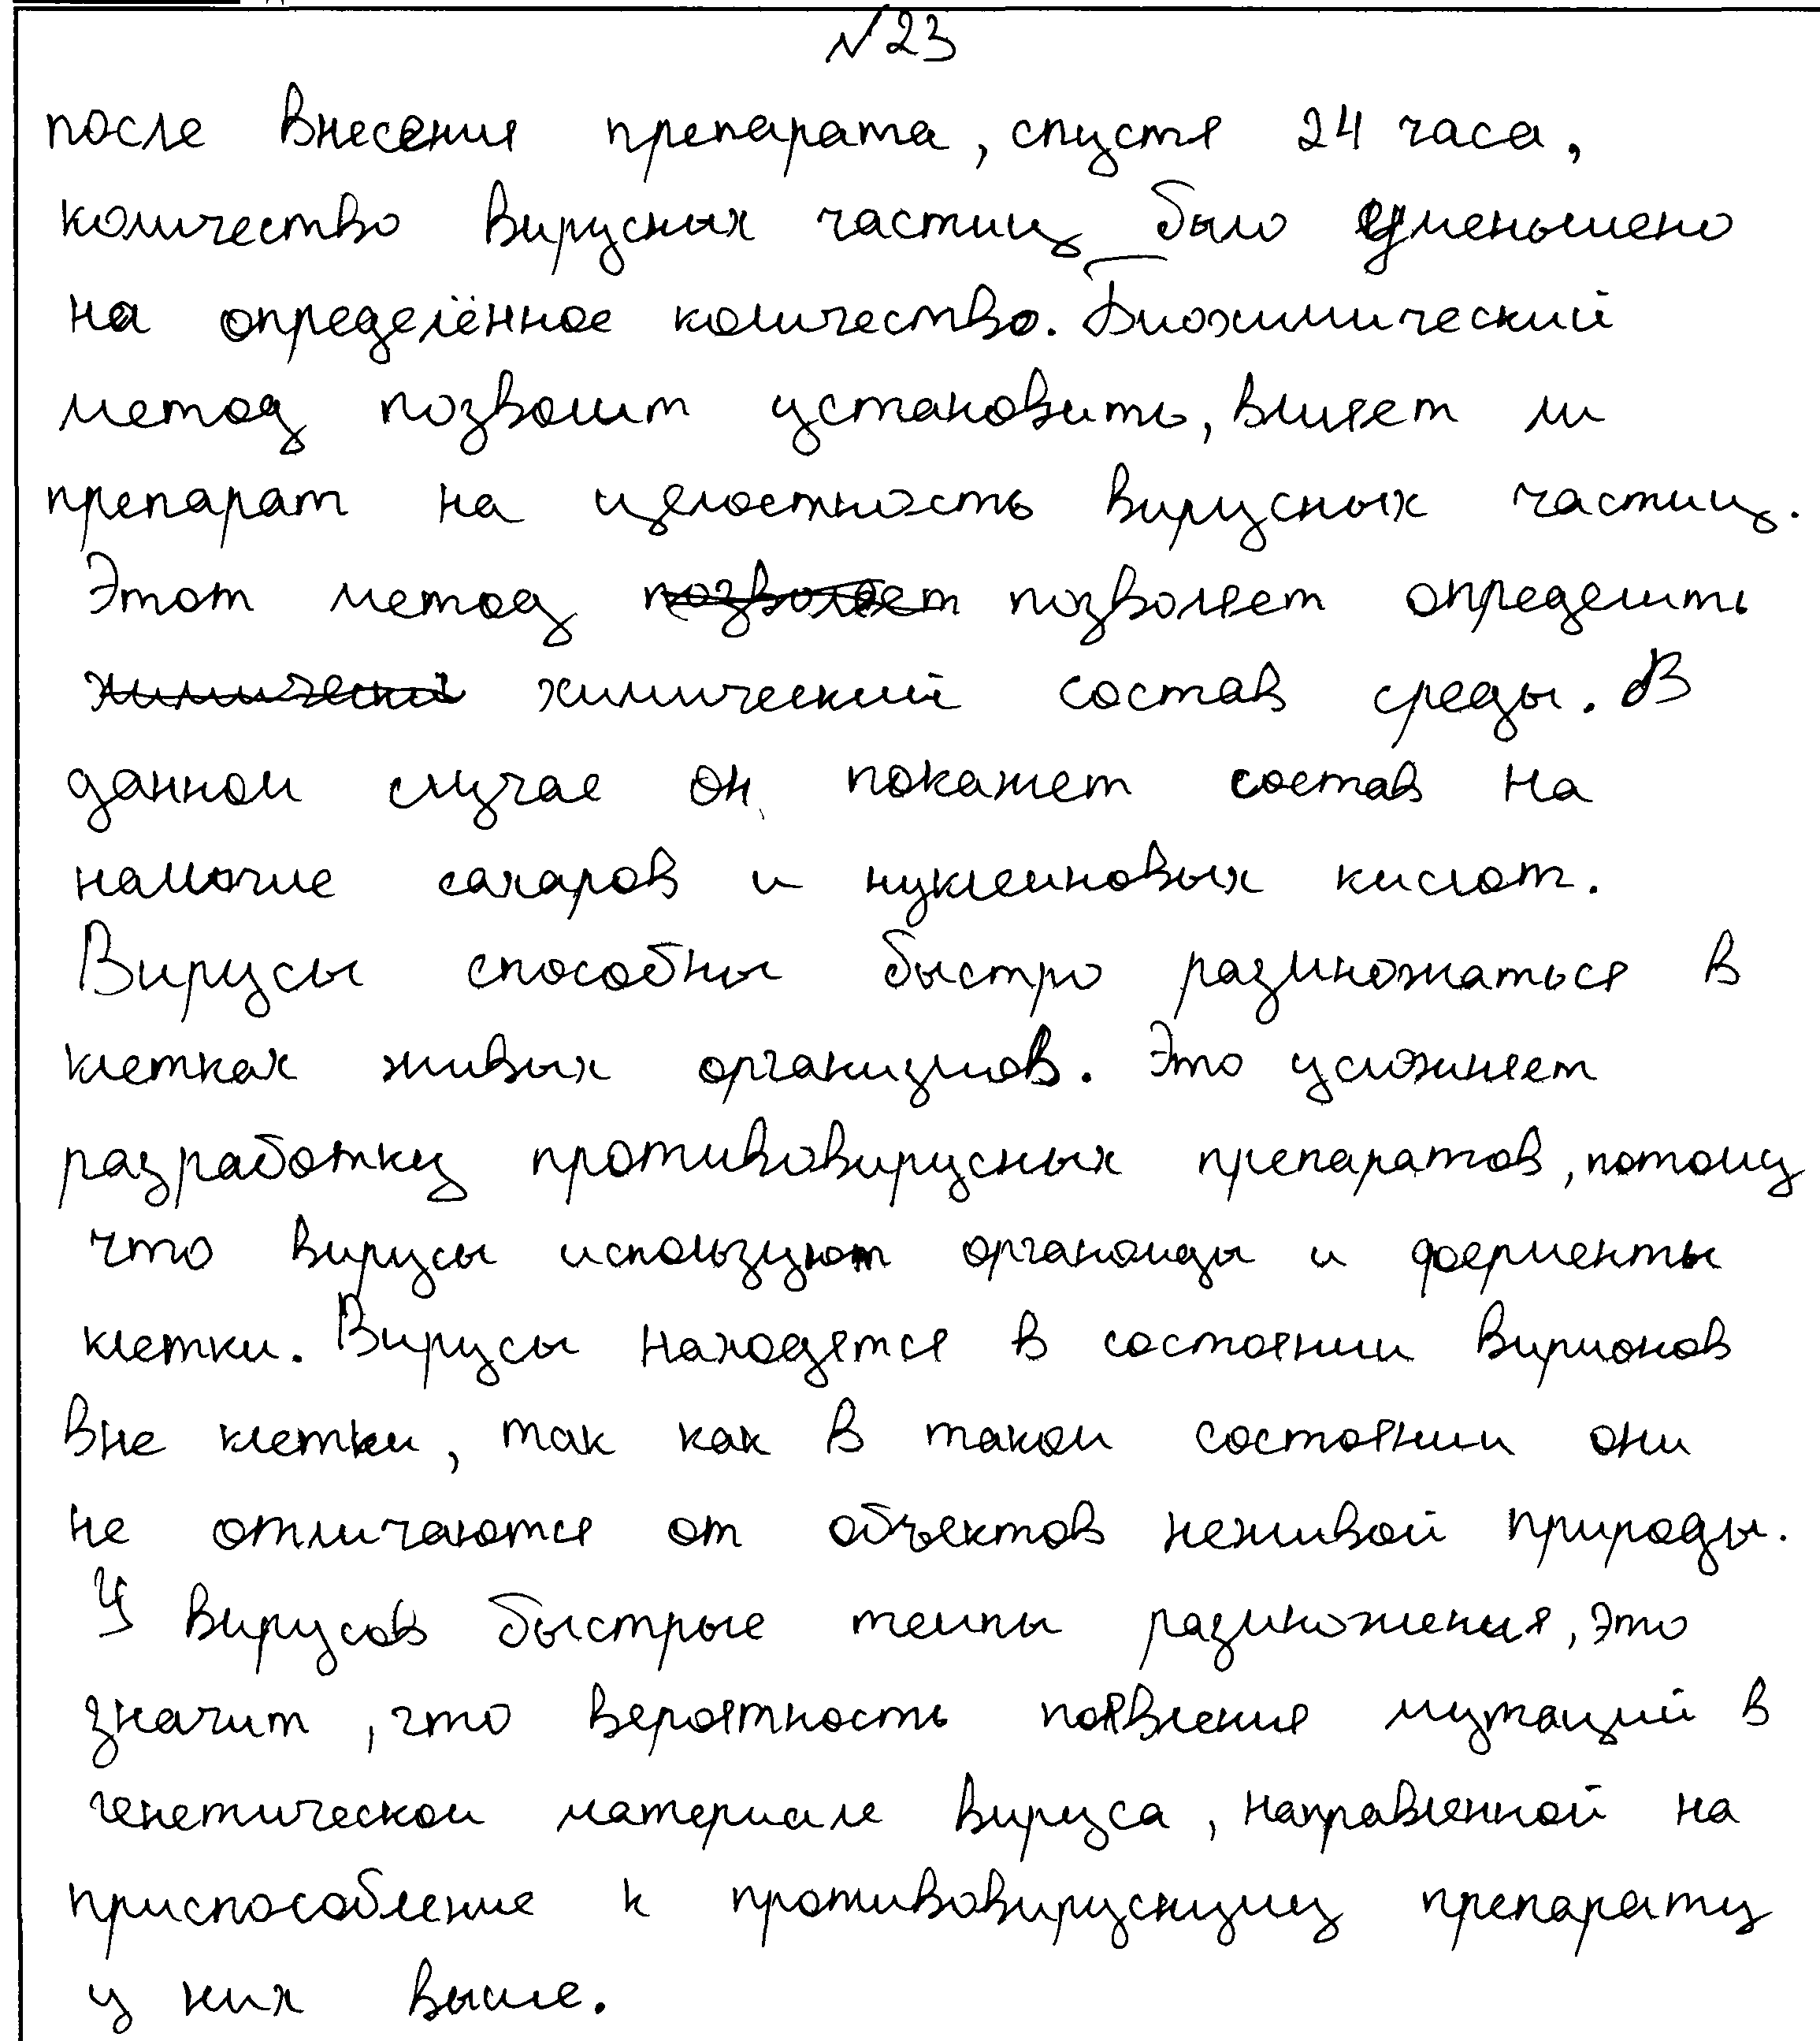 №23
после внесения препарата, спустя 24 часа,
количество вирусных частиц было уменьшено
на определённое количество. Биохимический
метод позволит установить, влияет ли
препарат на целостность вирусных частиц.
Этот метод позволяет позволяет определить
химический химический состав среды. В
данном случае он покажет состав на
наличие сахаров и нуклеиновых кислот.
Вирусы способны быстро размножаться в
клетках живых организмов. Это усложняет
разработку противовирусных препаратов, потому
что вирусы используют органоиды и ферменты
клетки. Вирусы находятся в состоянии вирионов
вне клетки, так как в таком состоянии они
не отличаются от объектов неживой природы.
У вирусов быстрые темпы размножения, это
значит, что вероятность появления мутаций в
генетическом материале вируса, направленной на
приспособление к противовирусному препарату
у них выше.